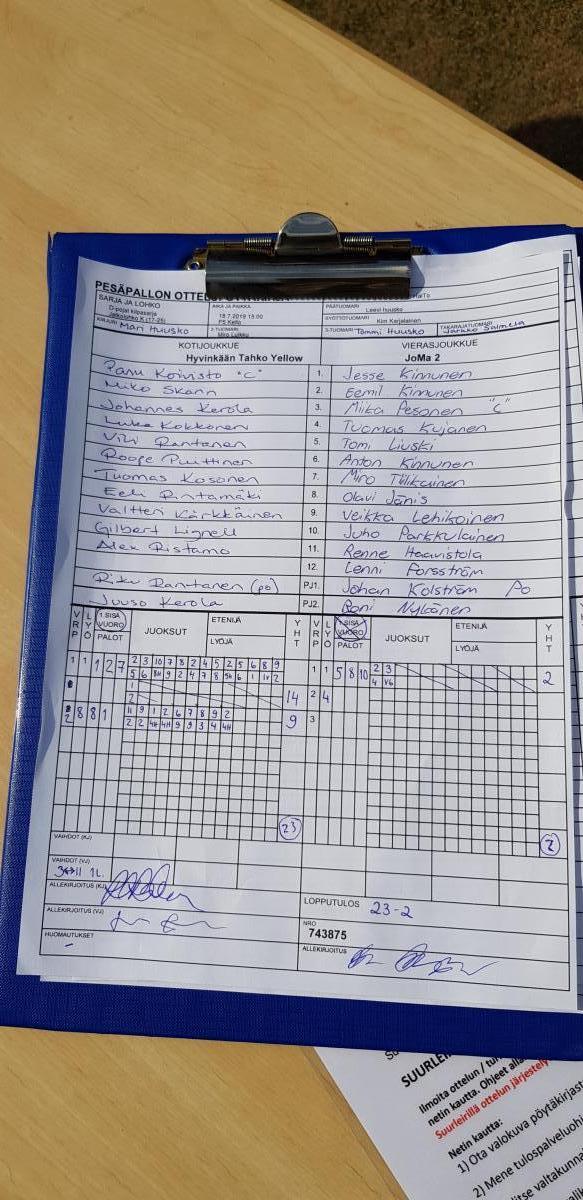 PESÄPALLON
SARJA JA LOHKO
D-pojat kilpasarja
Jatkolohko K (17-25)
AIKA JA PAIKKA
18.7.2019 15:00
PS Kello
PÄÄTUOMARI
Leevi huusko
SYÖTTÖTUOMARI
Kim Karjalainen
KIRJURI Mari Huusko
2-TUOMARI
3-TUOMARI Tommi Huusko
TAKARAJATUOMARI
KOTIJOUKKUE
VIERASJOUKKUE
Hyvinkään Tahko Yellow
JoMa 2
Panu Koivisto "C" 1. Jesse Kinnunen
Miko Skann 2. Eemil Kinnunen
Johannes Kerola 3. Miika Pesonen "C"
Luka Kokkonen 4. Tuomas Kujanen
Vili Rantanen 5. Tomi Liuski
Roope Puittinen 6. Anton Kinnunen
Tuomas Kosonen 7. Miro Tiilikainen
Eeli Rintamäki 8. Olavi Jänis
Valtteri Kärkkäinen 9. Veikka Lehikoinen
Gilbert Lignell 10. Juho Parkkulainen
Alex Ristamo 11. Renne Haavistola
12. Lenni Forsström
Riku Rantanen (po) PJ1. Johan Kolström Po
Juuso Kerola PJ2. Roni Nykänen
VRP LYÖ 1 SISÄ VUORO PALOT JUOKSUT ETENIJÄ LYÖJÄ YHT
VRP LYÖ 1 SISÄ VUORO PALOT JUOKSUT ETENIJÄ LYÖJÄ YHT
1 1 1 2 7 2 3 10 7 8 2 4 5 2 5 6 8 9
1 1 5 8 10 2 3 2
14
2 4
2 8 8 1 11 9 1 2 6 7 8 9 2 9
3
23
2
VAIHDOT (KJ)
VAIHDOT (VJ)
ALLEKIRJOITUS (KJ)
ALLEKIRJOITUS (VJ)
HUOMAUTUKSET
-
LOPPUTULOS 23-2
NRO
743875
ALLEKIRJOITUS
SUURLEI
Ilmoita ottelun / tur
netin kautta. Ohjeet alla
Suurleirillä ottelun järjestely
Netin kautta:
1) Ota valokuva pöytäkirjast
2) Mene tulospalveluohj
valtakunna